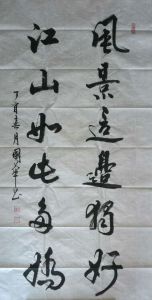 風景這邊獨好
江山如此多嬌
丁酉春月國華書